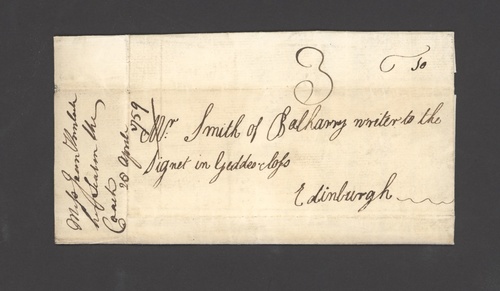 3
To
Mr. Smith of Balharry writer to the
Signet in Geddes-closs
Edinburgh
Miss Jean
her Seat on the
Coach
20 April
1759